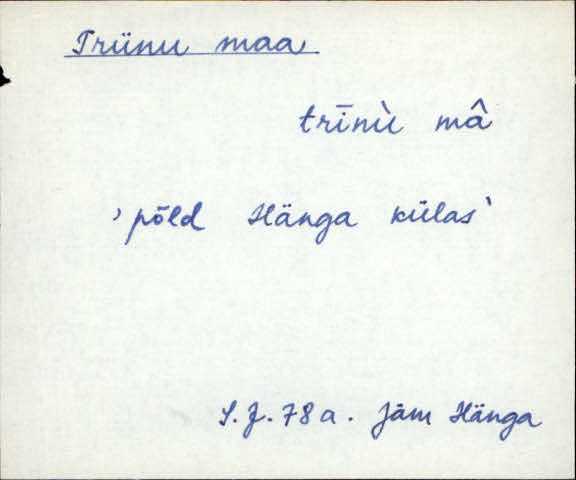 Triinu maa
trīnù mâ
’põld Hänga külas‵
S.J. 78 a. Jäm Hänga